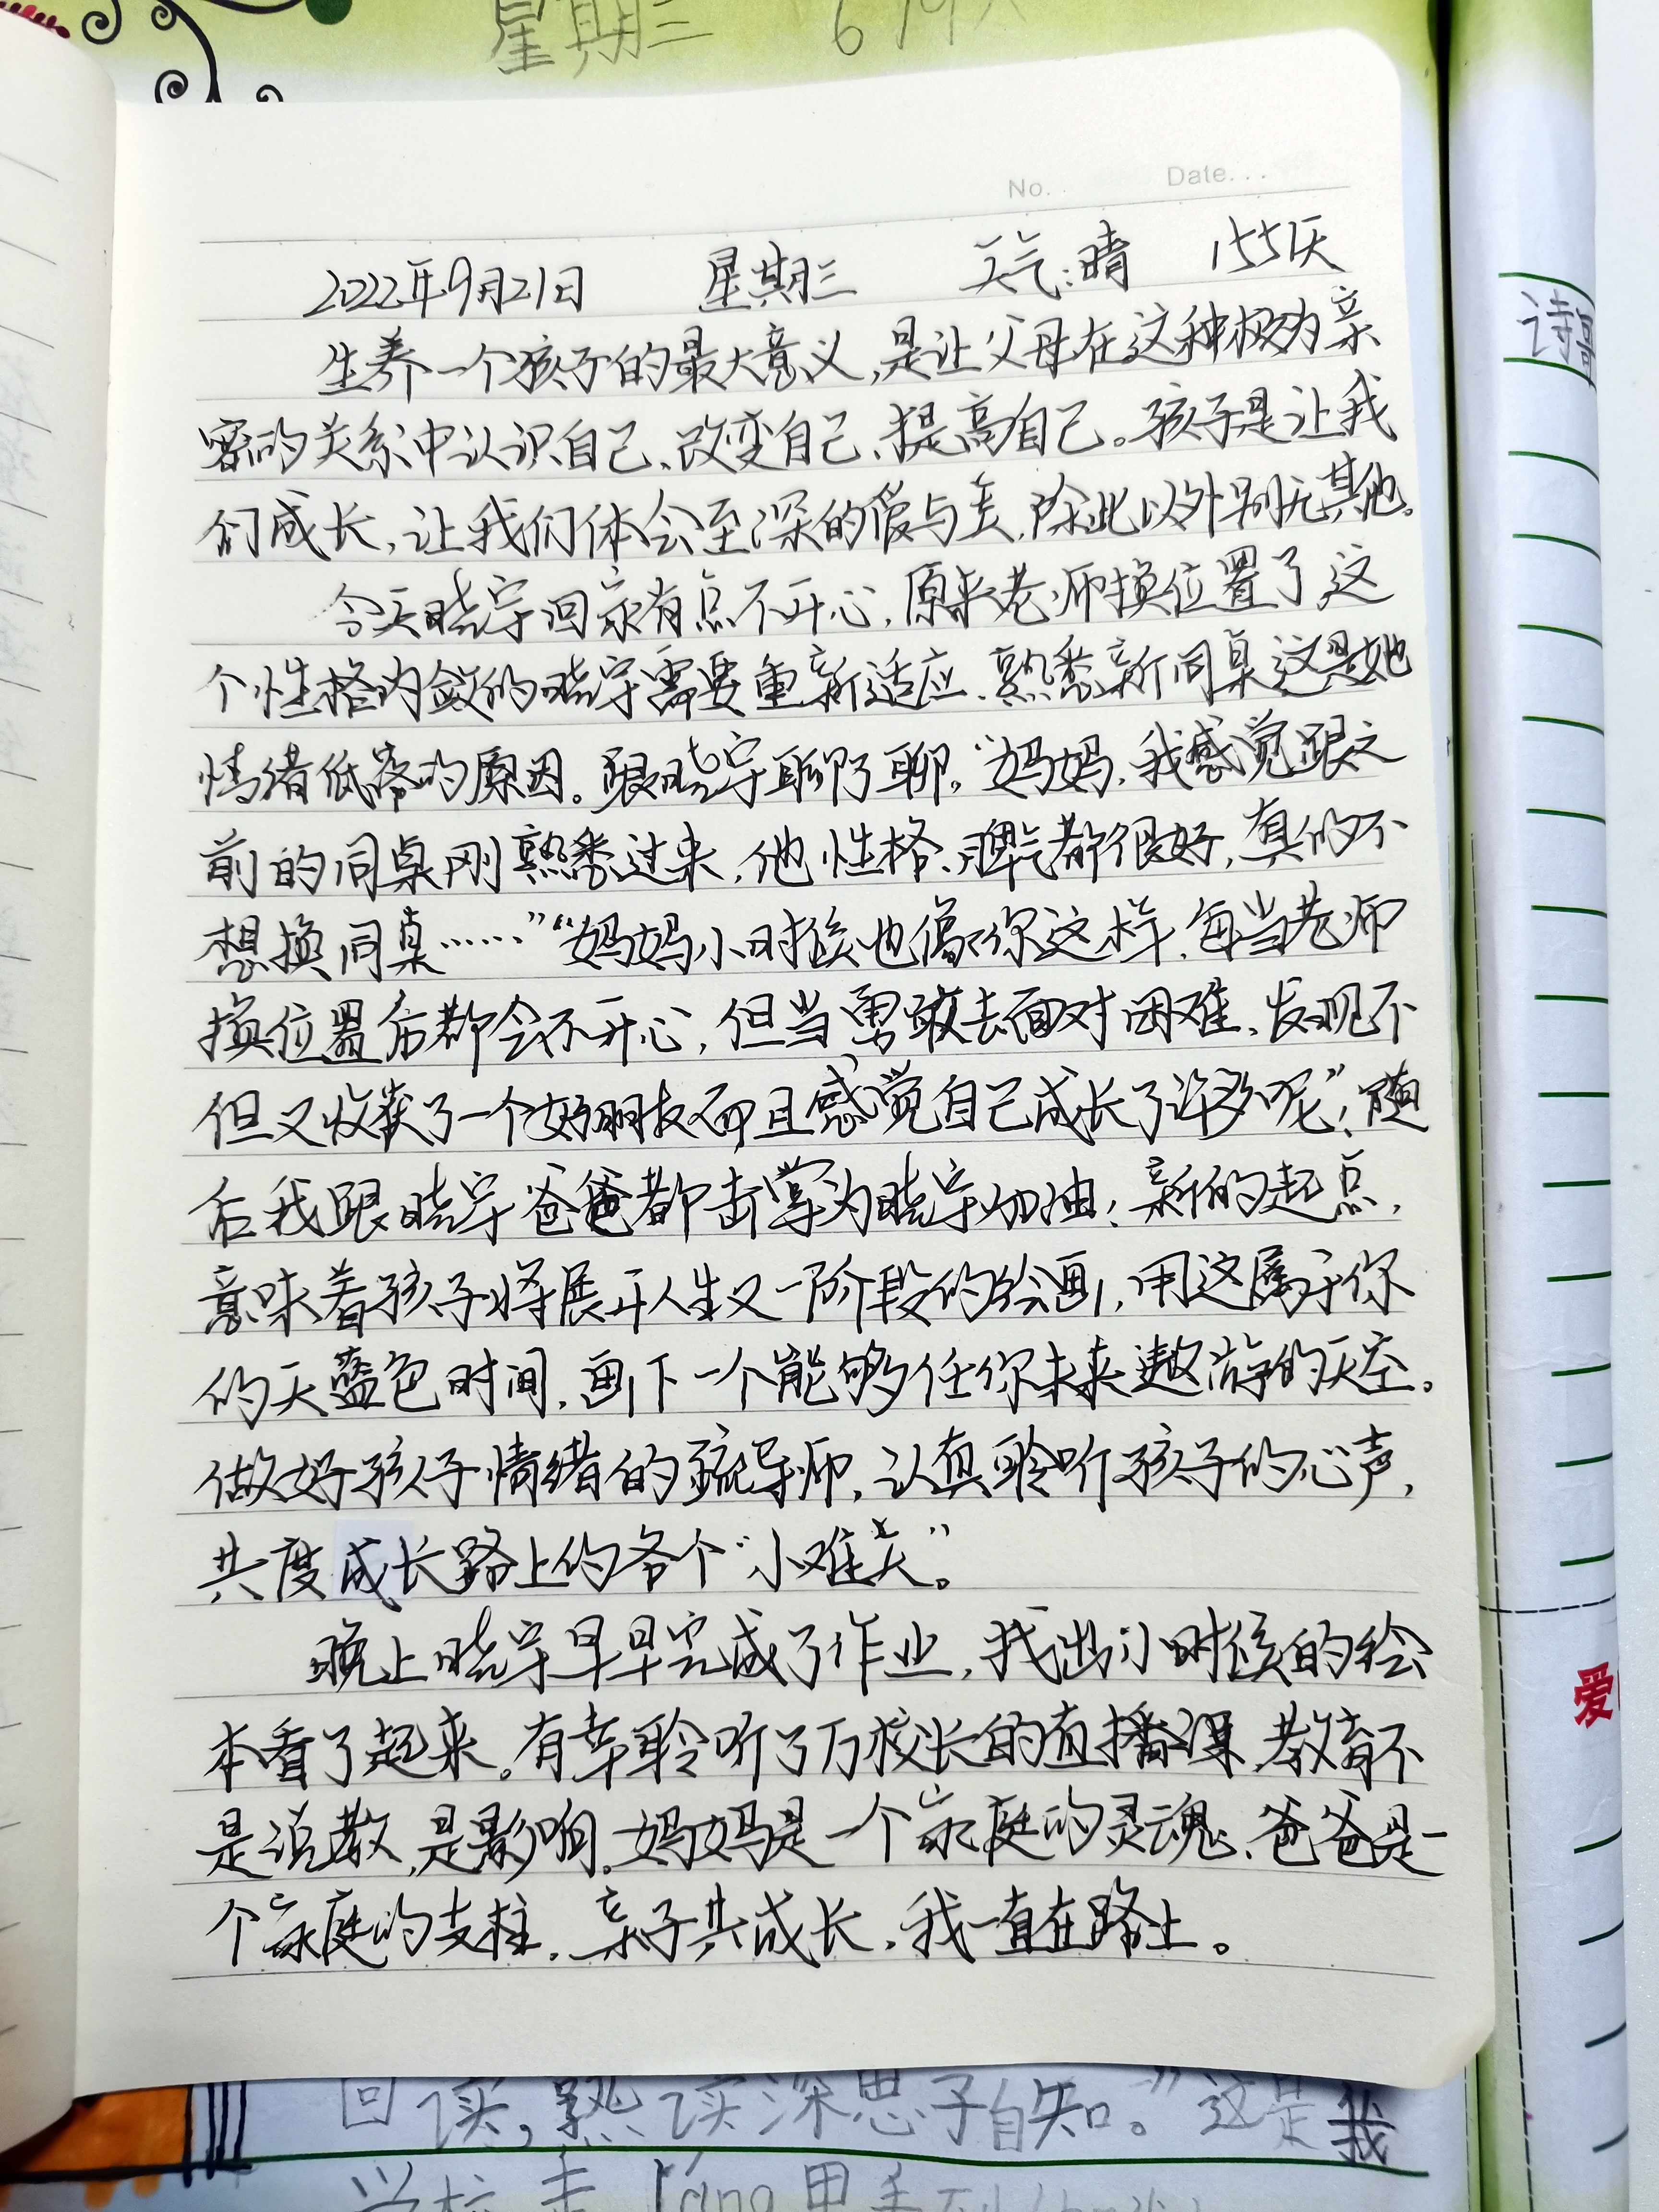 星期三
No. Date...
2022年9月21日 星期三 天气:晴 155天
生养一个孩子的最大意义,是让父母在这种极为亲
密的关系中认识自己、改变自己、提高自己。孩子是让我
们成长,让我们体会至深的爱与美,除此以外别无其他。
今天晓宇回家有点不开心,原来老师换位置了,这
个性格内敛的晓宇需要重新适应、熟悉新同桌这是她
情绪低落的原因。跟晓宇聊了聊,“妈妈,我感觉跟之
前的同桌刚熟悉过来,他性格、脾气都很好,真的不
想换同桌……”“妈妈小时候也像你这样,每当老师
换位置后都会不开心,但当勇敢去面对困难,发现不
但又收获了一个好朋友而且感觉自己成长了许多呢”!随
后我跟晓宇爸爸都击掌为晓宇加油:新的起点,
意味着孩子将展开人生又一阶段的绘画,用这属于你
的天蓝色时间,画下一个能够任你未来遨游的天空。
做好孩子情绪的疏导师,认真聆听孩子的心声,
共度成长路上的各个“小难关”。
晚上晓宇早早完成了作业,找出小时候的绘
本看了起来。有幸聆听了万校长的直播课,教育不
是说教,是影响。妈妈是一个家庭的灵魂、爸爸是一
个家庭的支柱,亲子共成长,我一直在路上。
诗歌
爱
回读,熟读深思子自知。”这是我